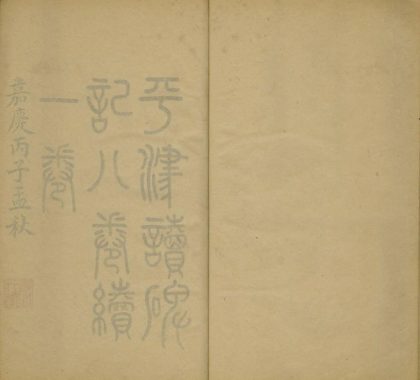 平津讀碑
記八卷續
一卷
嘉慶丙子孟秋